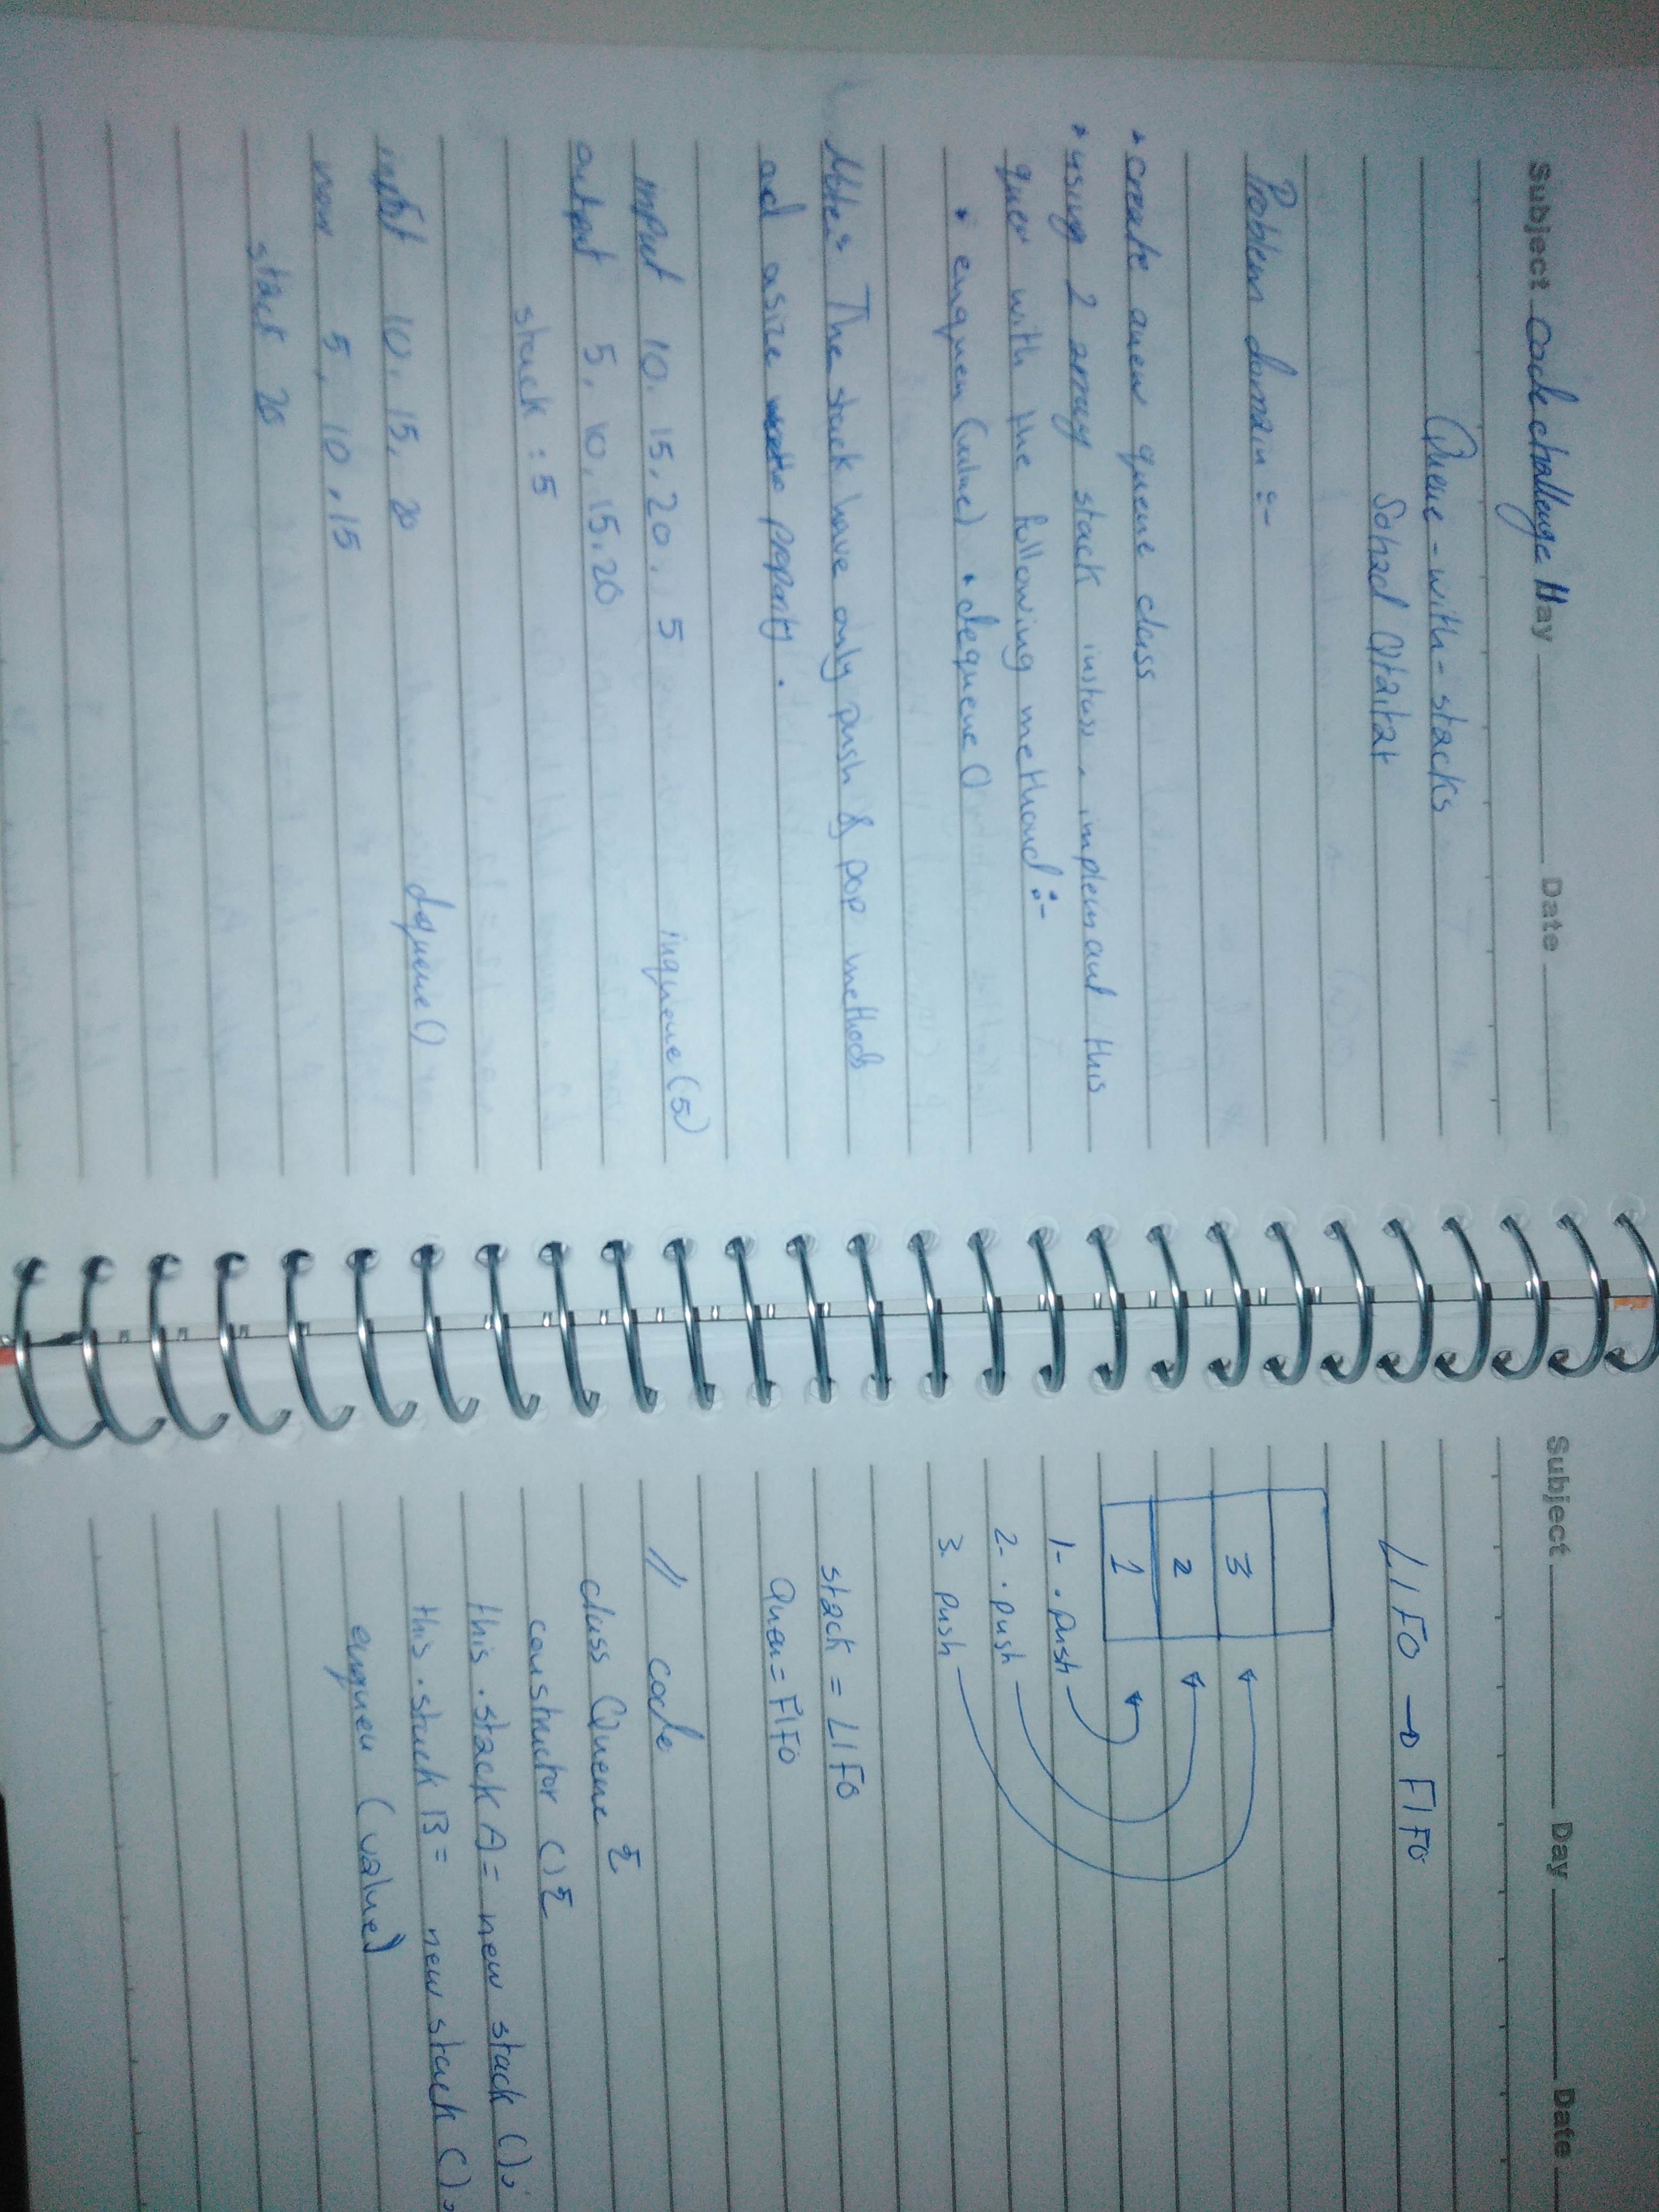 Subject Code challenge 11 Day Date
Queue-with-stacks
Sohad Qtaitat
Problem domain :-
• create a new queue class
• using 2 array stack instass, implemant this
quew with the following methoud :-
• enqueu (value) • dequeue ()
Note: The stack have only push & pop methods
ad a size property.
input 10, 15, 20, , 5 inqueue(5)
output 5, 10, 15, 20
stack : 5
input 10, 15, 20 dequeue()
now 5, 10, 15
stack 20
Subject Day Date
LIFO → FIFO
3
2
1
1- .push
2- .push
3. push
stack = LIFO
Queu = FIFO
// code
class Queue {
constructor () {
this .stack A = new stack ();
this .stack B = new stack ();
enqueu (value)